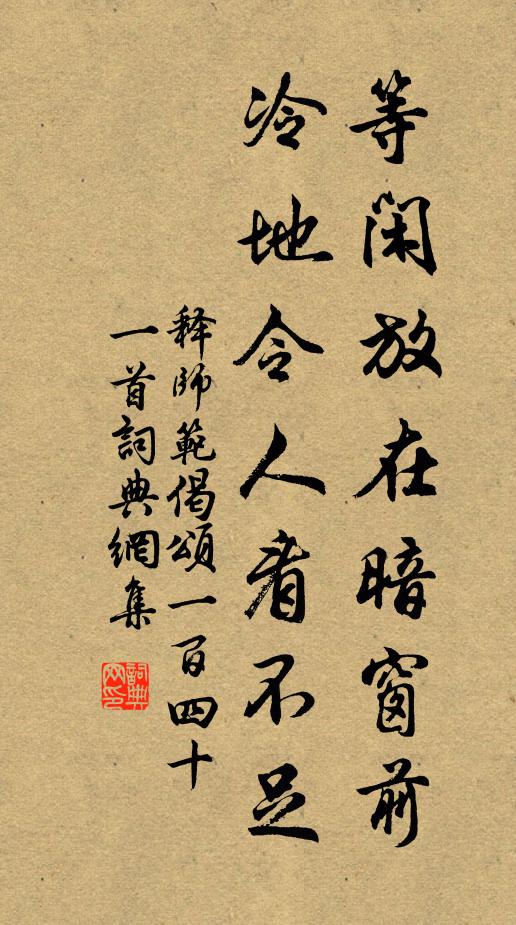 等闲放在暗窗前
冷地令人看不足
释师範偈颂一百四十
一首詞典網集
詞典網印